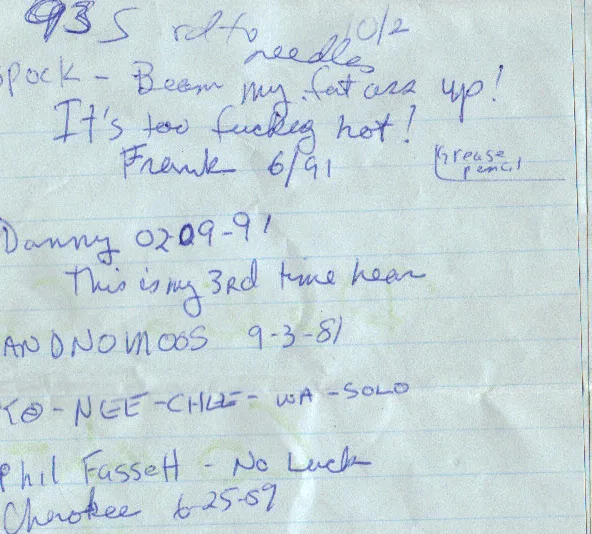 93 S rd to needles 10/2
Spock - Beam my fat ass up!
It's too fuckeg hot!
Frank 6/91
Grease pencil
Danny 0209-91
This is my 3rd time hear
ANDNOMOOS 9-3-81
KO-NEE-CHEE-WA-SOLO
Phil Fassett - No Luck
Cherokee 6-25-59